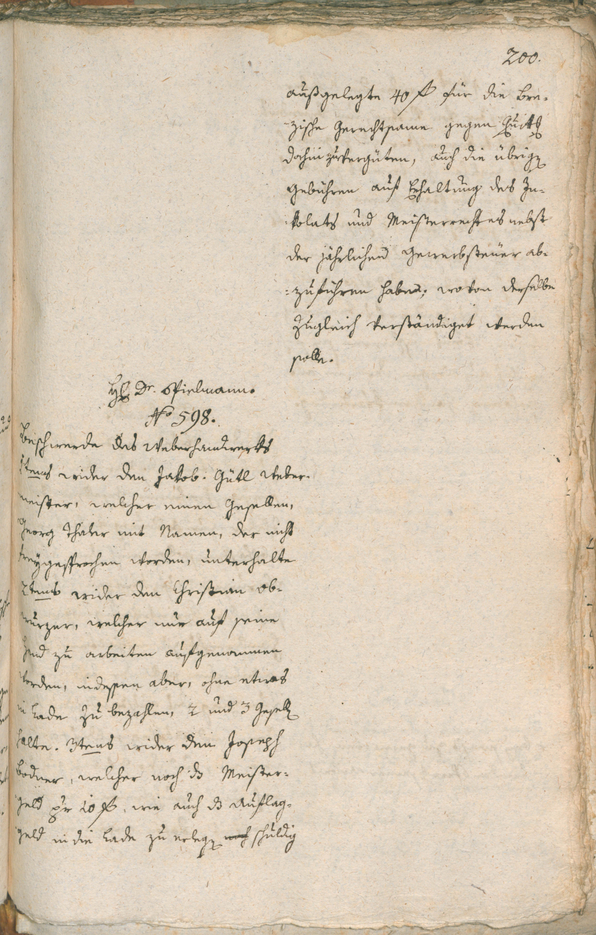 200.
außgelegte 40 f für die Bre-
zische Gerechtsame gegen
dahin zuvergüten, auch die übrige
gebühren auf Erhaltung des In-
kolats und Meisterrechtes nebst
der jährlichen gewerbsteuer ab-
zuführen haben; wovon derselbe
Zugleich verständiget werden
solle.
H Dr. Spielmann.
No 598.
Beschwerde des Weberhandwerks
1tens wider den Jakob Gütl Weber-
meister, welcher einen Gesellen,
Georg Thaler mit Namen, der nicht
freygesprochen worden, unterhalte
2tens wider den Christian Ob-
wurzer, welcher nur auf seine
Hand zu arbeiten aufgenommen
worden, indessen aber, ohne etwas
in Lade zu bezahlen, 2 und 3 Gesell
halte. 3tens wider den Joseph
Bodner, welcher noch ds Meister-
geld pr 10 f, wie auch ds Auflag-
geld in die Lade zu erlegen schuldig